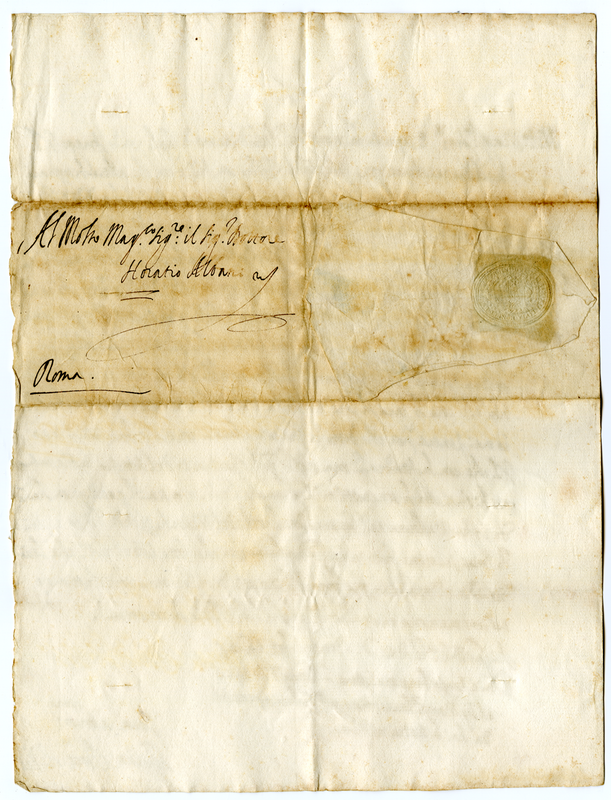 Al Molto Mag.co Sig.re il Sig.r Dottore
Horatio Albani
Roma.